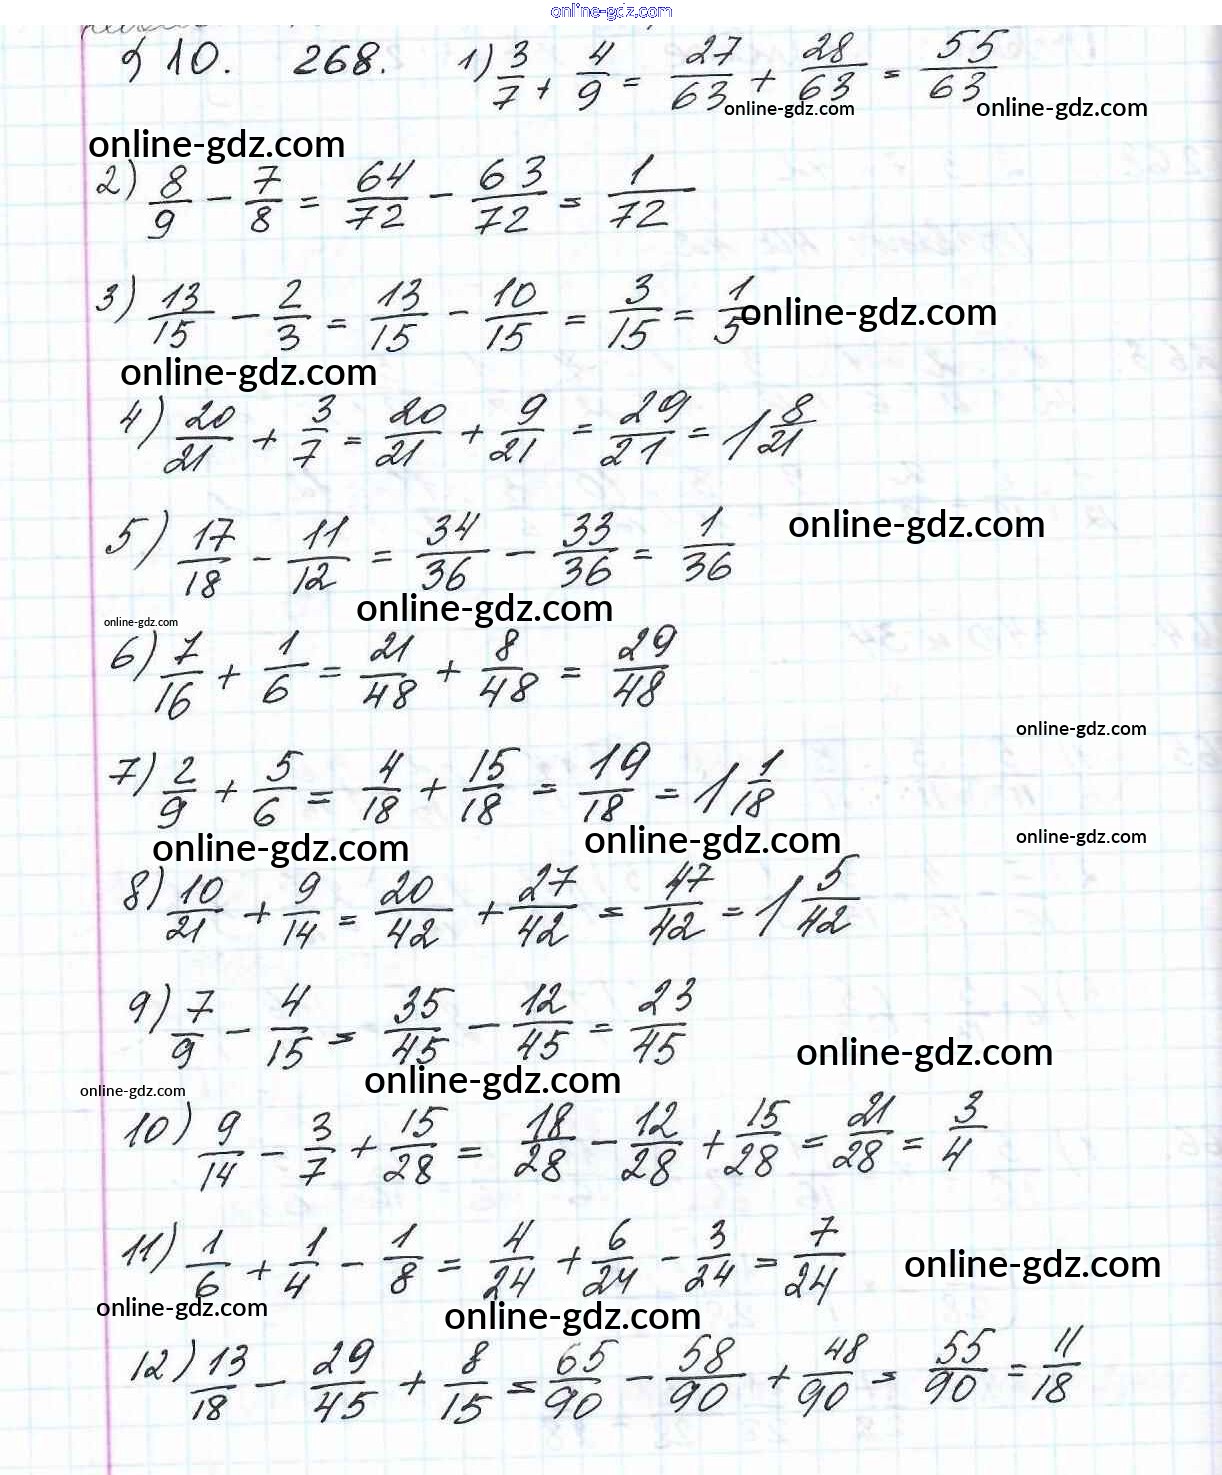 online-gdz.com
§ 10. 268. 1) 3/7 + 4/9 = 27/63 + 28/63 = 55/63
online-gdz.com online-gdz.com
online-gdz.com
2) 8/9 - 7/8 = 64/72 - 63/72 = 1/72
3) 13/15 - 2/3 = 13/15 - 10/15 = 3/15 = 1/5
online-gdz.com
online-gdz.com
4) 20/21 + 3/7 = 20/21 + 9/21 = 29/21 = 1 8/21
5) 17/18 - 11/12 = 34/36 - 33/36 = 1/36
online-gdz.com
online-gdz.com
online-gdz.com
6) 7/16 + 1/6 = 21/48 + 8/48 = 29/48
online-gdz.com
7) 2/9 + 5/6 = 4/18 + 15/18 = 19/18 = 1 1/18
online-gdz.com online-gdz.com online-gdz.com
8) 10/21 + 9/14 = 20/42 + 27/42 = 47/42 = 1 5/42
9) 7/9 - 4/15 = 35/45 - 12/45 = 23/45
online-gdz.com
online-gdz.com
online-gdz.com
10) 9/14 - 3/7 + 15/28 = 18/28 - 12/28 + 15/28 = 21/28 = 3/4
11) 1/6 + 1/4 - 1/8 = 4/24 + 6/24 - 3/24 = 7/24
online-gdz.com
online-gdz.com online-gdz.com
12) 13/18 - 29/45 + 8/15 = 65/90 - 58/90 + 48/90 = 55/90 = 11/18